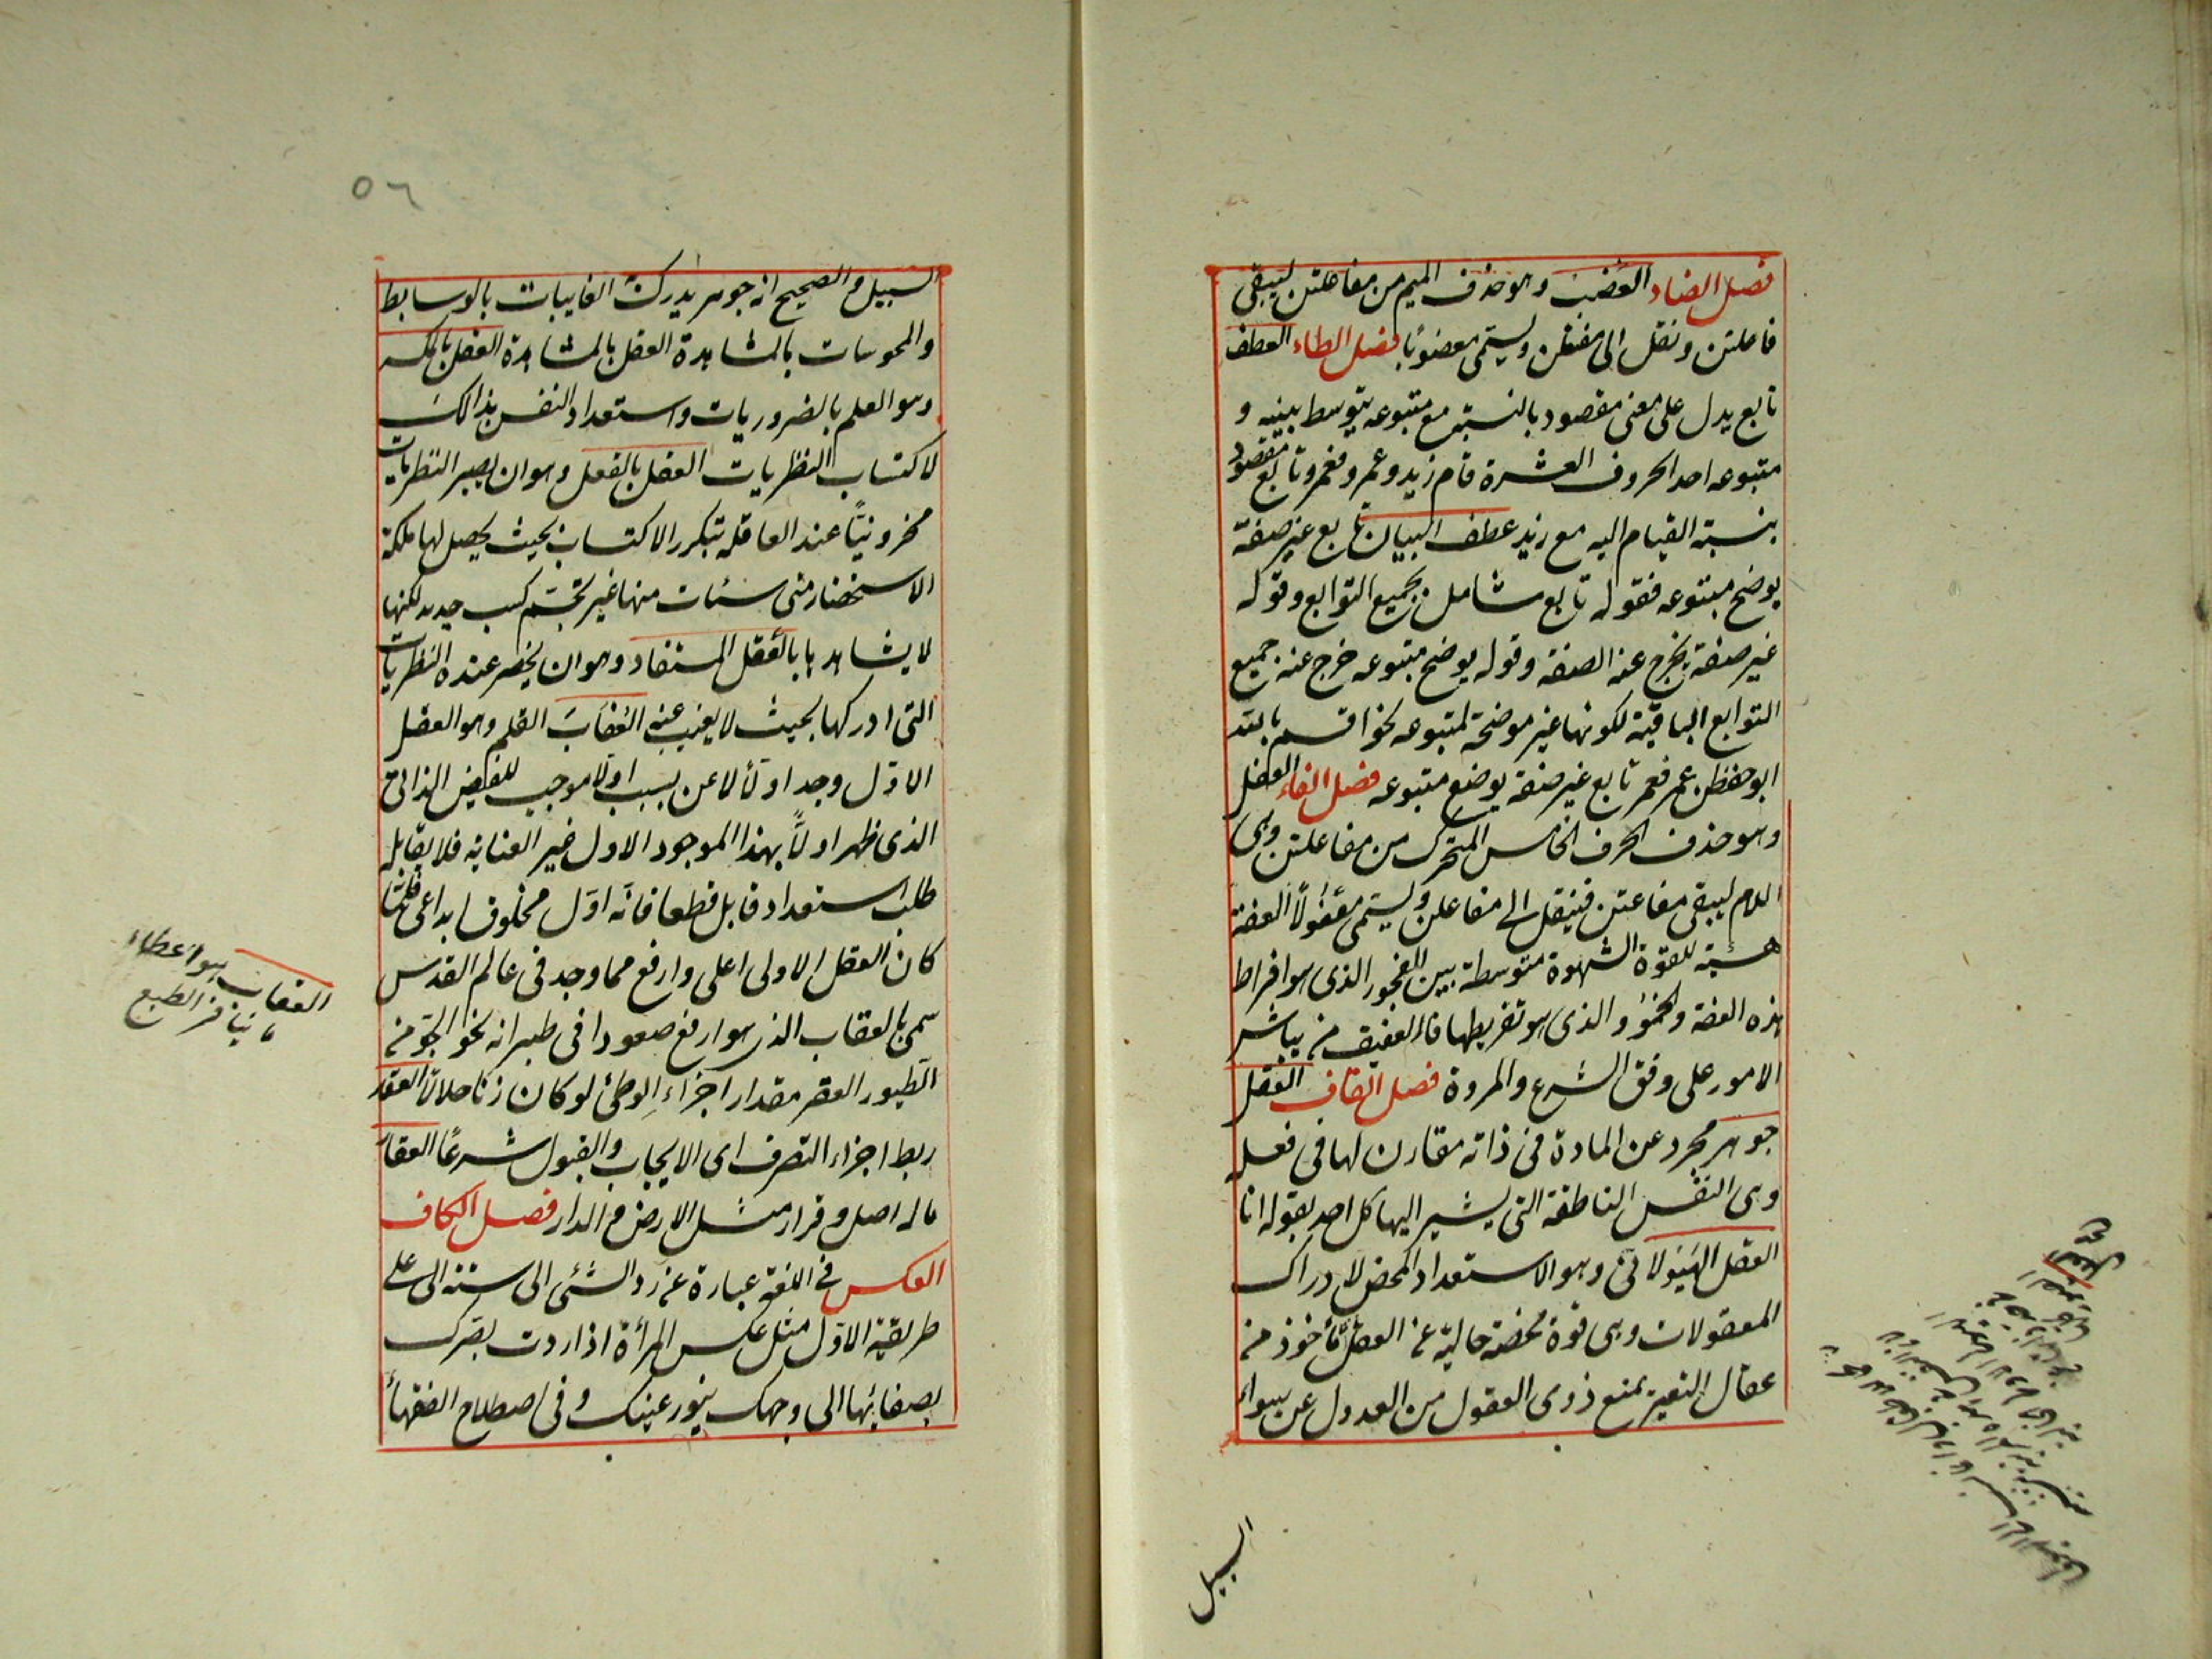 فصل الضاد العضب وهو حذف الميم من مفاعلتن ليبقى
فاعلتن ونقل الى مفتعلن ويسمى معضوبا فصل الطاء العطف
تابع يدل على معنى مقصود بالنسبة مع متبوعه يتوسط بينه و
متبوعه احد الحروف العشرة قام زيد وعمرو فعمرو تابع مقصود
بنسبة القيام اليه مع زيد عطف البيان تابع غير صفة
يوضح متبوعه فقوله تابع شامل لجميع التوابع وقوله
غير صفة يخرج عنه الصفة وقوله يوضح متبوعه خرج عنه جميع
التوابع الباقية لكونها غير موضحة لمتبوعه نحو اقسم بالله
ابو حفظن عمر فعمر تابع غير صفة يوضع متبوعه فصل الفاء
وهو حذف الحرف الخامس المتحرك من مفاعلتن وهى
اللام ليبقى مفاعتن فينقل الى مفاعلن ويسمى العفة
هيئة للقوة الشهوة متوسطة بين الفجور الذى هو افراط
هذه العفة والذى هو تفريطها فالعفيف من يباشر
الامور على وفق الشرع والمروة فصل القاف العقل
جوهر مجرد عن المادة فى ذاته مقارن لها فى فعله
وهى النفس الناطقة التى يشير اليها كل احد بقوله انا
العقل الهيولانى وهو الاستعداد المحض لادراك
المعقولات وهى قوة محضة خالية عن العقل مأخوذ من
عقال البعير يمنع ذوى العقول من العدول عن سواء
السبيل
٥٦
السبيل والصحيح انه جوهر يدرك الغايبات بالوسايط
والمحوسات بالمشاهدة العقل بالمشاهدة العقل بالملكه
وهو العلم بالضروريات واستعداد النفس بذالك
لاكتساب النظريات العقل بالفعل وهو ان يصير النظريات
مخزونيًا عند العاقله بتكرر الاكتساب بحيث يحصل لها ملكة
الاستحضار متى شئات منها غير تجشم كسب جديد لكنها
لا يشاهدها بالعقل المستفاد وهو ان يحضر عنده النظريات
التى ادركها بحيث لا يغيب عنه العقاب القلم وهو العقل
الاول وجد اولا لا عن سبب اولا موجب للفيض الذاتى
الذى ظهر اولاً بهذا الموجود الاول غير العناية فلا يقابله
طلب استعداد قابل قطعا فانه اول مخلوق ابداعى فلما
كان العقل الاولى اعلى وارفع مما وجد فى عالم القدس
سمى بالعقاب الذى هو ارفع صعودا فى طيرانه نحو الجو من
الطيور العقر مقدار اجزاء الوطئ لو كان زنا حلالا العقد
ربط اجزاء التصرف اى الايجاب والقبول شرعًا العقار
ماله اصل وقرار مثل الارض والدار فصل الكاف
العكس فى اللغة عبارة عن رد الشئ الى سننه الى على
طريقة الاول مثل عكس المرأة اذا ردت بصرك
بصفائها الى وجهك بنور عينك وفى اصطلاح الفقهأ